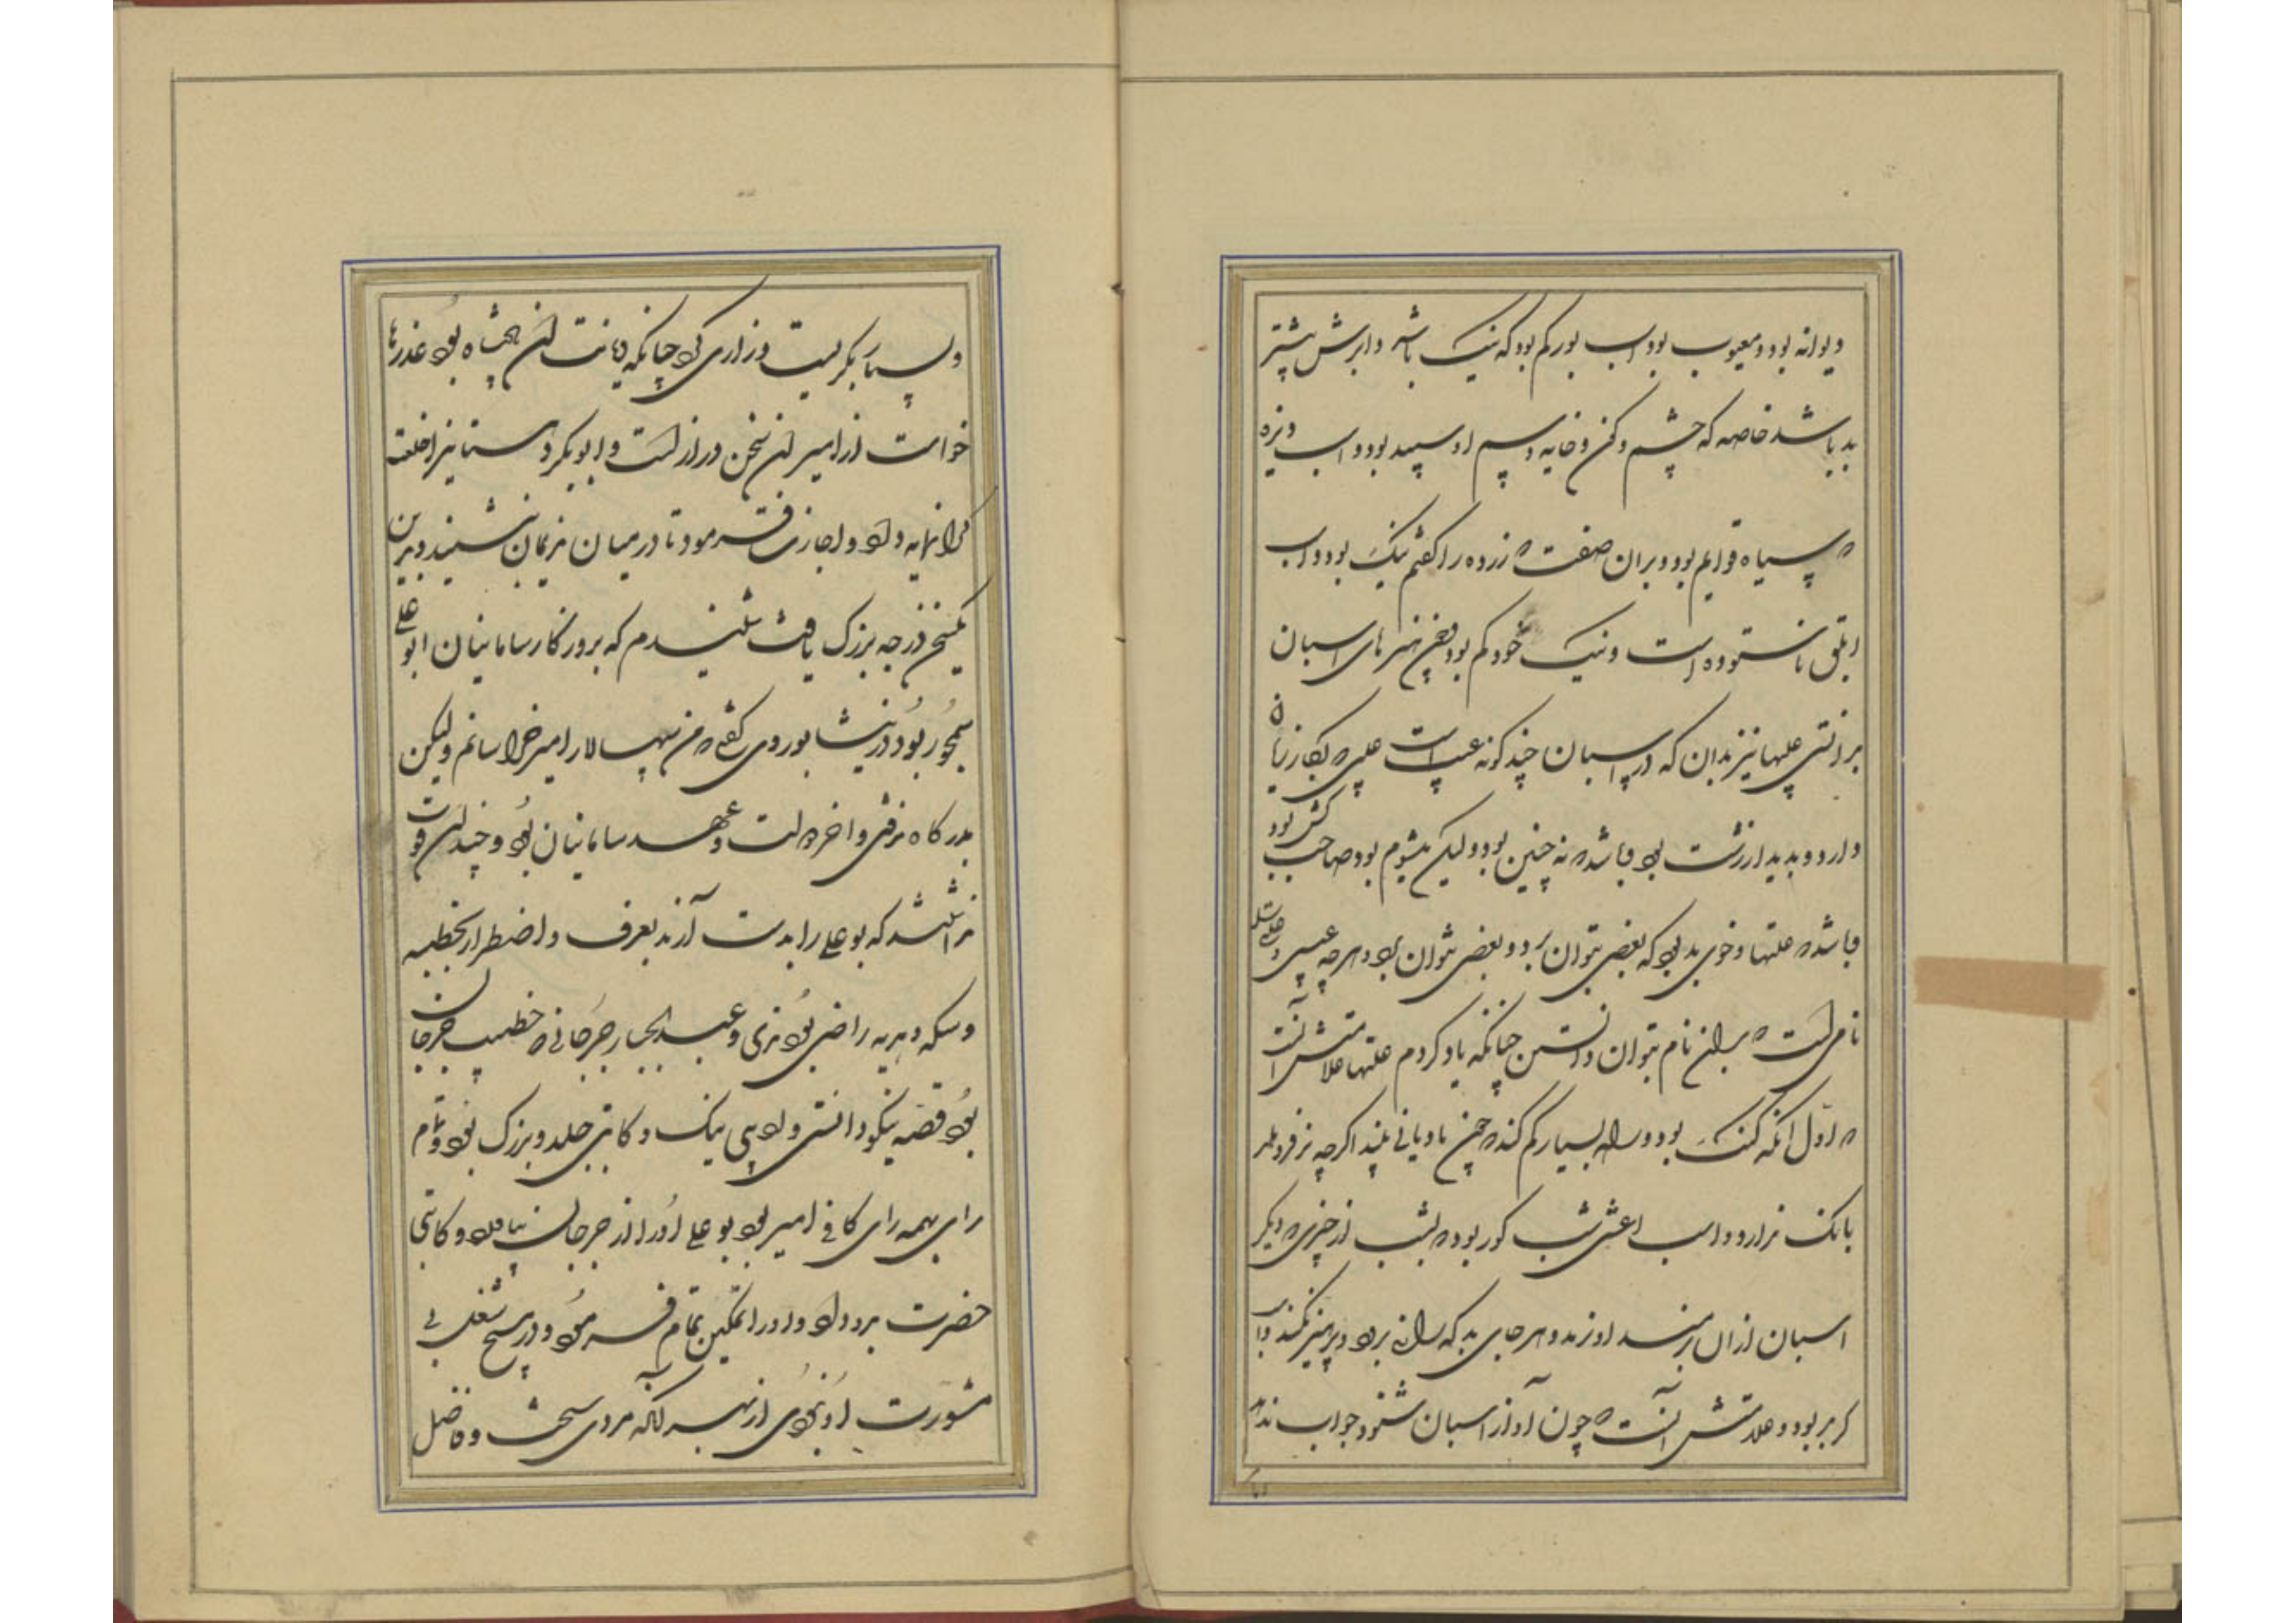 دیوانه بود و معیوب بود اسب بور کم بود که نیک باشد و ابرش بیشتر
بد باشد خاصه که چشم و کن و خایه و سم او سپید بود و اسب ویزه
که سیاه قوایم بود و بران صفت که زرده را کفتم نیک بود و اسب
ابلق ناستوده است و نیک خود کم بود و چون هنرهای اسبان
بدانستی علیبها نیز بدان که در اسبان چند کونه عیب است عیبی که بکار زیان
دارد و بدیدار زشت بود و باشد که نه چنین بود ولیکن میشوم بود و صاحب کش بود
و باشد که علتها و خوی بد بود که بعضی بتوان برد و بعضی نتوان برد و هر چه عیبی و علتی
نامی است که بدان نام بتوان دانستن چنانکه یاد کردم علتها علامتش آنست
که اول آنکه کنک بود و راه بسیار کم کند که چون مادیانی بیند اکرچه نر فرو هلد
بانک ندارد و اسب اعشی شب کور بود که بشب از چیزی که دیکر
اسبان از ان برمند او نرمد و هر جای بد که برانی برود و پرهیز نکند و اسب
کر بر بود و علامتش آنست که چون آواز اسبان شنود جواب ندهد
و بسیار بکریست و زاری کرد چنانکه دیانت ان پادشاه بود عذرها
خواست از امیر ان سخن دراز است و ابوبکر دستا نیز اخلعت
کرانمایه داد و اجازت فرمود تا در میان ندیمان بنشیند و بدین
یکسخن درجه بزرک یافت شنیدم که بروزکار سامانیان ابو علی
سیمجور بود در نیشابور وی کفتی که من سپهسالار امیر خراسانم ولیکن
بدرکاه نرفتی و آخر دولت و عهد سامانیان بود و چندان قوت
نداشتند که بو علی را بدست آرند بعرف و اضطرار بخطبه
و سکه و هدیه راضی بودندی و عبد الجبار جرجانی که خطیب جرجان
بود قصه نیکو دانستی و ادیبی نیک و کاتبی جلد و بزرک بود و تمام
رای همه رای کافی امیر بود بو علی او را از جرجان بیاورد و کاتبی
حضرت بدو داد و او را تمکین تمام فرمود و در هیچ شغلی بی
مشورت او نبودی از بهر آنکه مردی سخت و فاضل